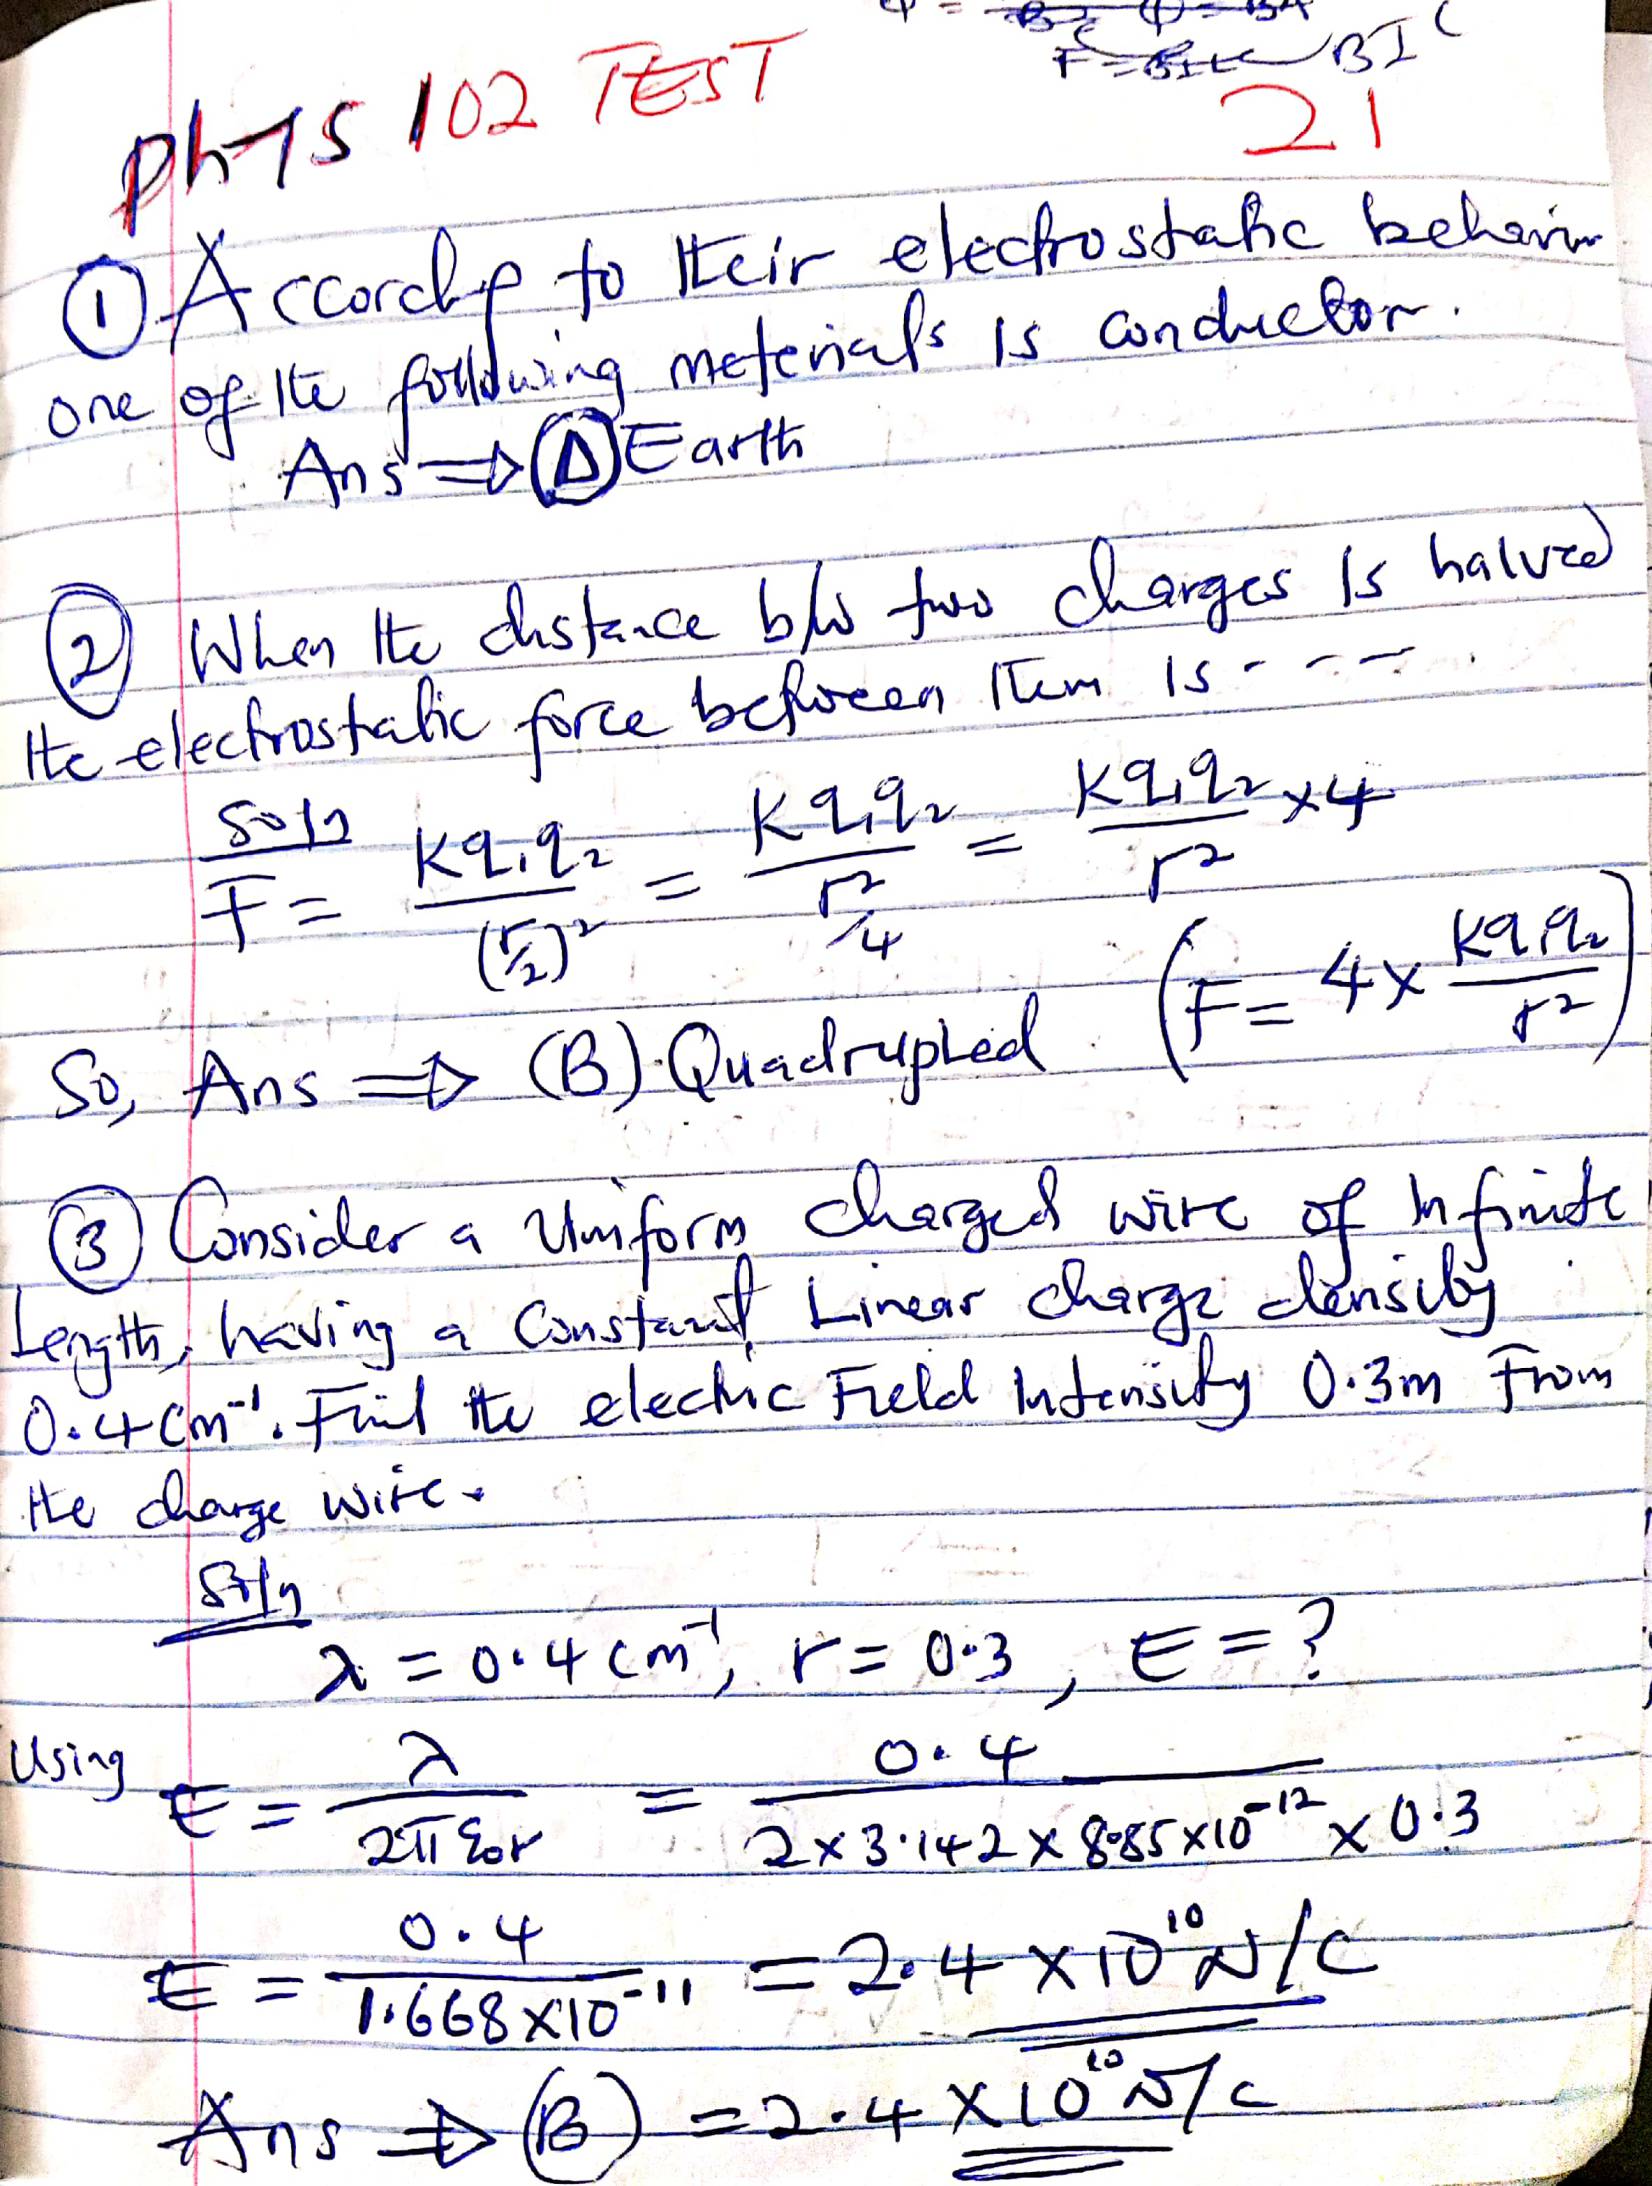 F = BIL BIL
PhYS 102 TEST
21
① According to their electrostatic behavior
one of the following materials is conductor.
Ans ⇒ Ⓐ Earth
② When the distance b/w two charges is halved
the electrostatic force between them is - - - .
Soln
F = Kq₁q₂/(r/2)² = Kq₁q₂/(r²/4) = Kq₁q₂/r² ×4
So, Ans ⇒ (B) Quadrupled (F = 4 × Kq₁q₂/r²)
③ Consider a Uniform charged wire of Infinite
Length, having a Constant Linear charge density
0.4 Cm⁻¹. Find the electric Field Intensity 0.3m From
the charge wire.
Soln
λ = 0.4 Cm⁻¹, r = 0.3, E = ?
Using E = λ/2πε₀r = 0.4/2 × 3.142 × 8.85 × 10⁻¹² × 0.3
E = 0.4/1.668 × 10⁻¹¹ = 2.4 × 10¹⁰ N/C
Ans ⇒ Ⓑ = 2.4 × 10¹⁰ N/C